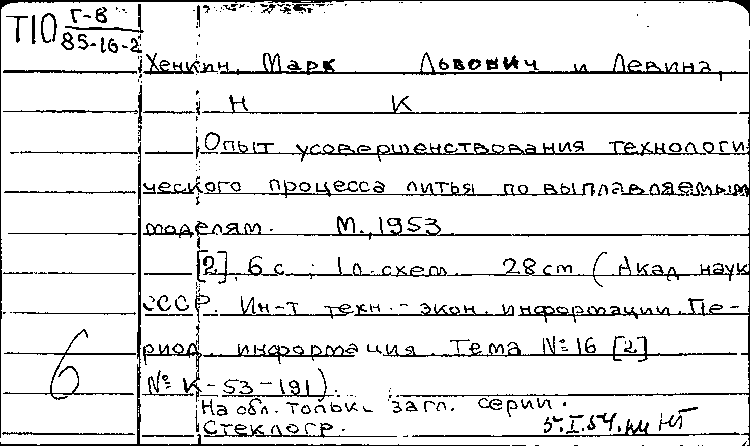 Т10 Г-В
85-16-2
Хенкин, Марк Львович и Левина,
Н К
Опыт усовершенствования технологи
ческого процесса литья по выплавляемым
моделям. М., 1953
[2], 6 с.; 1 л. схем. 28 см (Акад наук
СССР. Ин-т техн.-экон. информации. Пе-
риод. информация. Тема №16 [2]
№ К-53-191).
6
На обл. только загл. серии.
Стеклогр. 5.I.54.